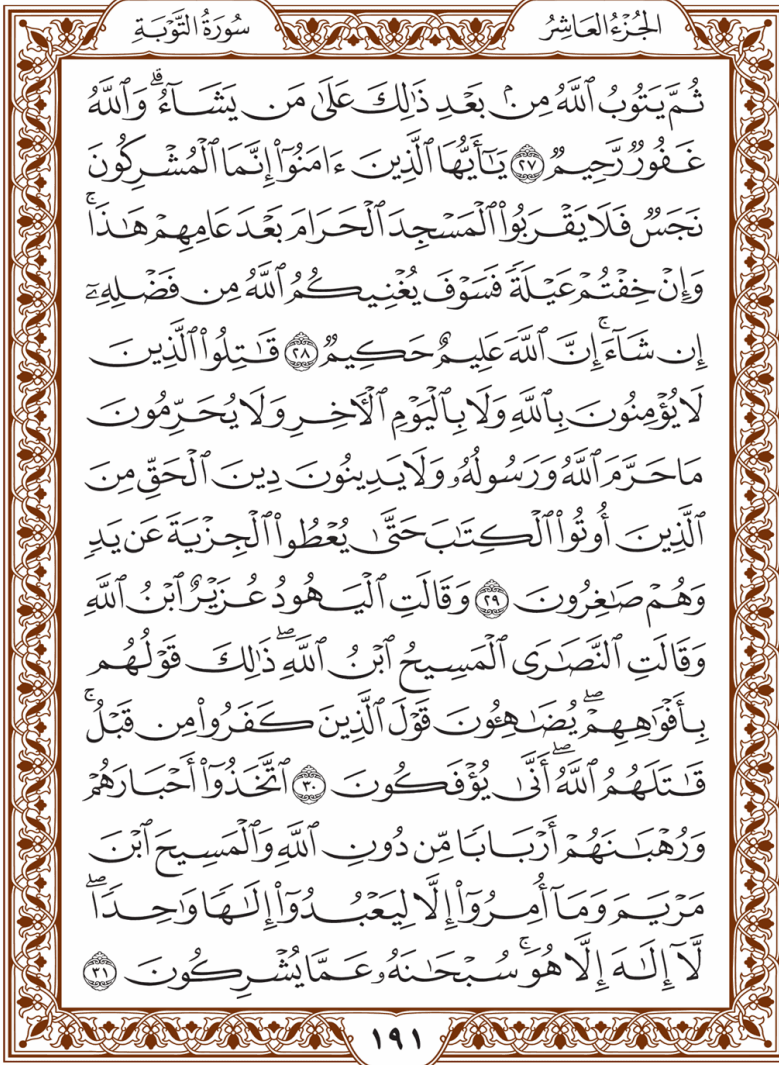 الجُزْءُ العَاشِرُ
سُورَةُ التَّوْبَةِ
ثُمَّ يَتُوبُ ٱللَّهُ مِنۢ بَعۡدِ ذَٰلِكَ عَلَىٰ مَن يَشَآءُۗ وَٱللَّهُ
غَفُورٞ رَّحِيمٞ ٢٧ يَٰٓأَيُّهَا ٱلَّذِينَ ءَامَنُوٓاْ إِنَّمَا ٱلۡمُشۡرِكُونَ
نَجَسٞ فَلَا يَقۡرَبُواْ ٱلۡمَسۡجِدَ ٱلۡحَرَامَ بَعۡدَ عَامِهِمۡ هَٰذَاۚ
وَإِنۡ خِفۡتُمۡ عَيۡلَةٗ فَسَوۡفَ يُغۡنِيكُمُ ٱللَّهُ مِن فَضۡلِهِۦٓ
إِن شَآءَۚ إِنَّ ٱللَّهَ عَلِيمٌ حَكِيمٞ ٢٨ قَٰتِلُواْ ٱلَّذِينَ
لَا يُؤۡمِنُونَ بِٱللَّهِ وَلَا بِٱلۡيَوۡمِ ٱلۡأٓخِرِ وَلَا يُحَرِّمُونَ
مَا حَرَّمَ ٱللَّهُ وَرَسُولُهُۥ وَلَا يَدِينُونَ دِينَ ٱلۡحَقِّ مِنَ
ٱلَّذِينَ أُوتُواْ ٱلۡكِتَٰبَ حَتَّىٰ يُعۡطُواْ ٱلۡجِزۡيَةَ عَن يَدٖ
وَهُمۡ صَٰغِرُونَ ٢٩ وَقَالَتِ ٱلۡيَهُودُ عُزَيۡرٌ ٱبۡنُ ٱللَّهِ
وَقَالَتِ ٱلنَّصَٰرَى ٱلۡمَسِيحُ ٱبۡنُ ٱللَّهِۖ ذَٰلِكَ قَوۡلُهُم
بِأَفۡوَٰهِهِمۡۖ يُضَٰهِـُٔونَ قَوۡلَ ٱلَّذِينَ كَفَرُواْ مِن قَبۡلُۚ
قَٰتَلَهُمُ ٱللَّهُۖ أَنَّىٰ يُؤۡفَكُونَ ٣٠ ٱتَّخَذُوٓاْ أَحۡبَارَهُمۡ
وَرُهۡبَٰنَهُمۡ أَرۡبَابٗا مِّن دُونِ ٱللَّهِ وَٱلۡمَسِيحَ ٱبۡنَ
مَرۡيَمَ وَمَآ أُمِرُوٓاْ إِلَّا لِيَعۡبُدُوٓاْ إِلَٰهٗا وَٰحِدٗاۖ
لَّآ إِلَٰهَ إِلَّا هُوَۚ سُبۡحَٰنَهُۥ عَمَّا يُشۡرِكُونَ ٣١
١٩١